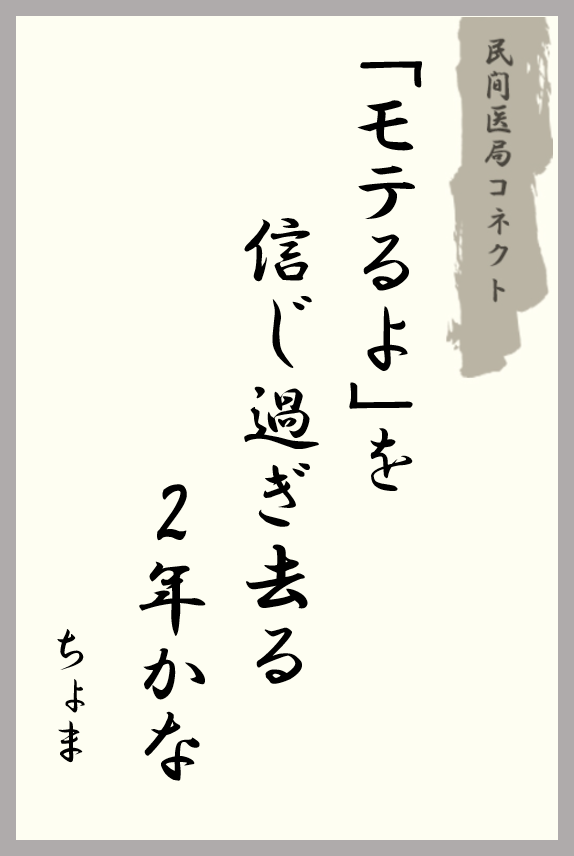 民間医局コネクト
「モテるよ」を
信じ過ぎ去る
2年かな
ちょま